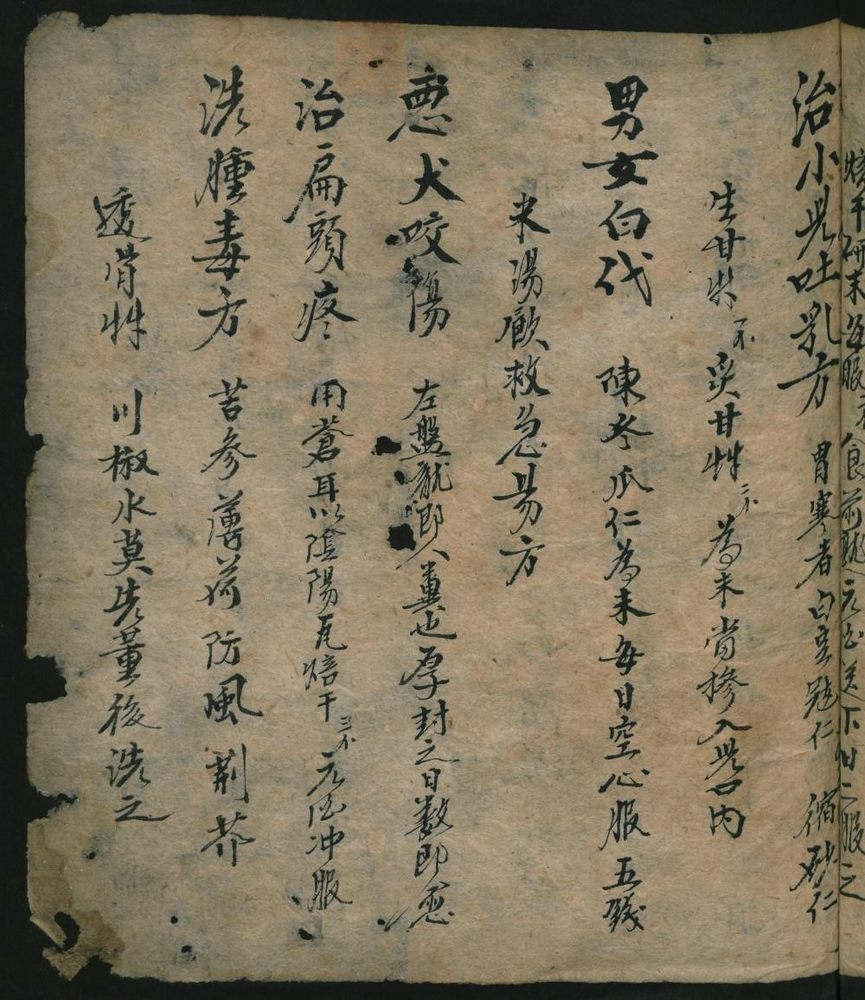 焙干研末每服 食前 元酒送下日二服之
治小児吐乳方 胃寒者白豆蔻仁 縮砂仁
生甘艸 炙甘艸 為末常摻入児口内
男女白代 陳冬瓜仁為末每日空心服五錢
米湯飲救急易方
惡犬咬傷 左盤龍即人糞也厚封之日數即愈
治扁頭疼 用蒼耳以陰陽瓦焙干 元酒冲服
洗腫毒方 苦參薄荷防風荆芥
透骨艸 川椒水莫先薰後洗之